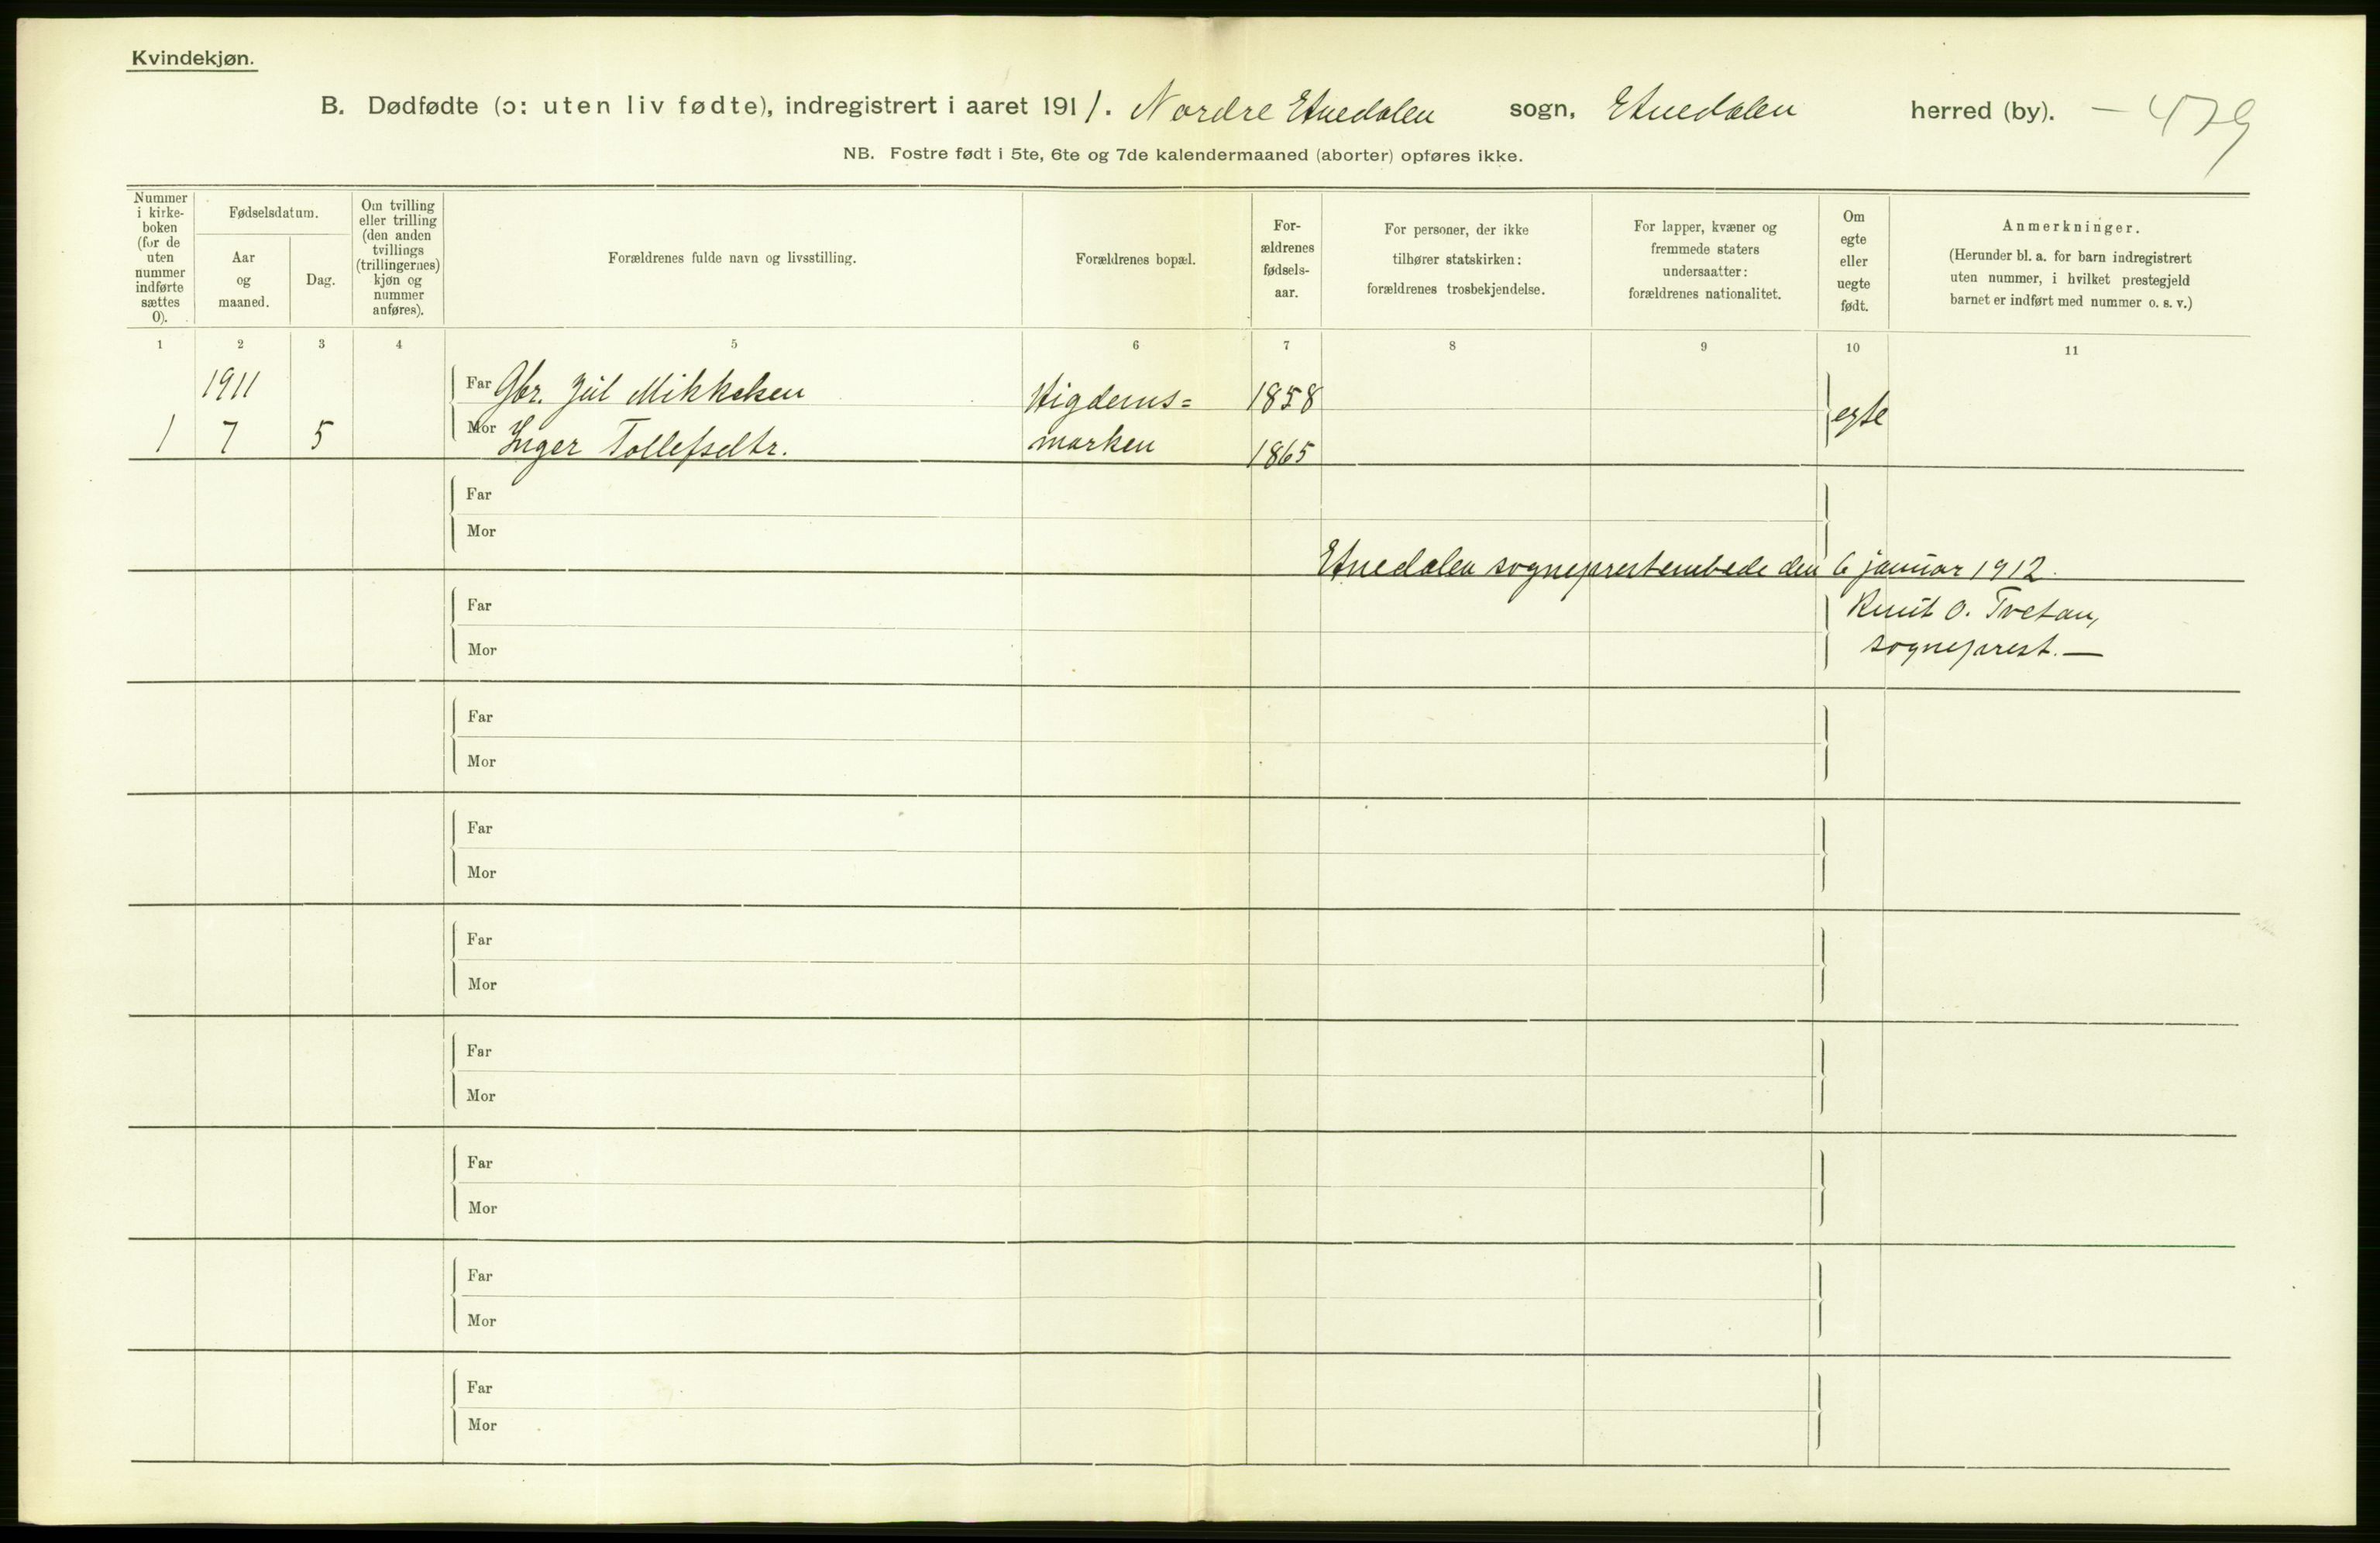 Kvindekjøn.
B. Dødfødte (ɔ: uten liv fødte), indregistrert i aaret 1911. Nordre Etnedalen sogn, Etnedalen herred (by). — 479
NB. Fostre født i 5te, 6te og 7de kalendermaaned (aborter) opføres ikke.
Nummer i kirke-boken (for de uten nummer indførte sættes 0).
Fødselsdatum.
Aar og maaned.
Dag.
Om tvilling eller trilling (den anden tvillings (trillingernes) kjøn og nummer anføres).
Forældrenes fulde navn og livsstilling.
Forældrenes bopæl.
For-ældrenes fødsels-aar.
For personer, der ikke tilhører statskirken: forældrenes trosbekjendelse.
For lapper, kvæner og fremmede staters undersaatter: forældrenes nationalitet.
Om egte eller uegte født.
Anmerkninger.
(Herunder bl. a. for barn indregistrert uten nummer, i hvilket prestegjeld barnet er indført med nummer o. s. v.)
1 2 3 4 5 6 7 8 9 10 11
1911 Far Gbr. Jul Mikkelsen 1858 egte
1 7 5 Mor Inger Tollefsdtr. marken 1865
Far
Mor
Etnedalen sogneprestembede den 6 januar 1912.
Far Knut O. Tvetan,
Mor sogneprest. —
Far
Mor
Far
Mor
Far
Mor
Far
Mor
Far
Mor
Far
Mor
Far
Mor